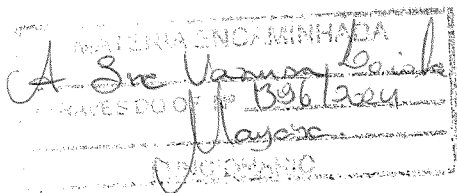 MATÉRIA ENCAMINHADA
A Sra Vanusa
ATRAVÉS DO OF. Nº 1396/2024
Mayara
FUNCIONÁRIO